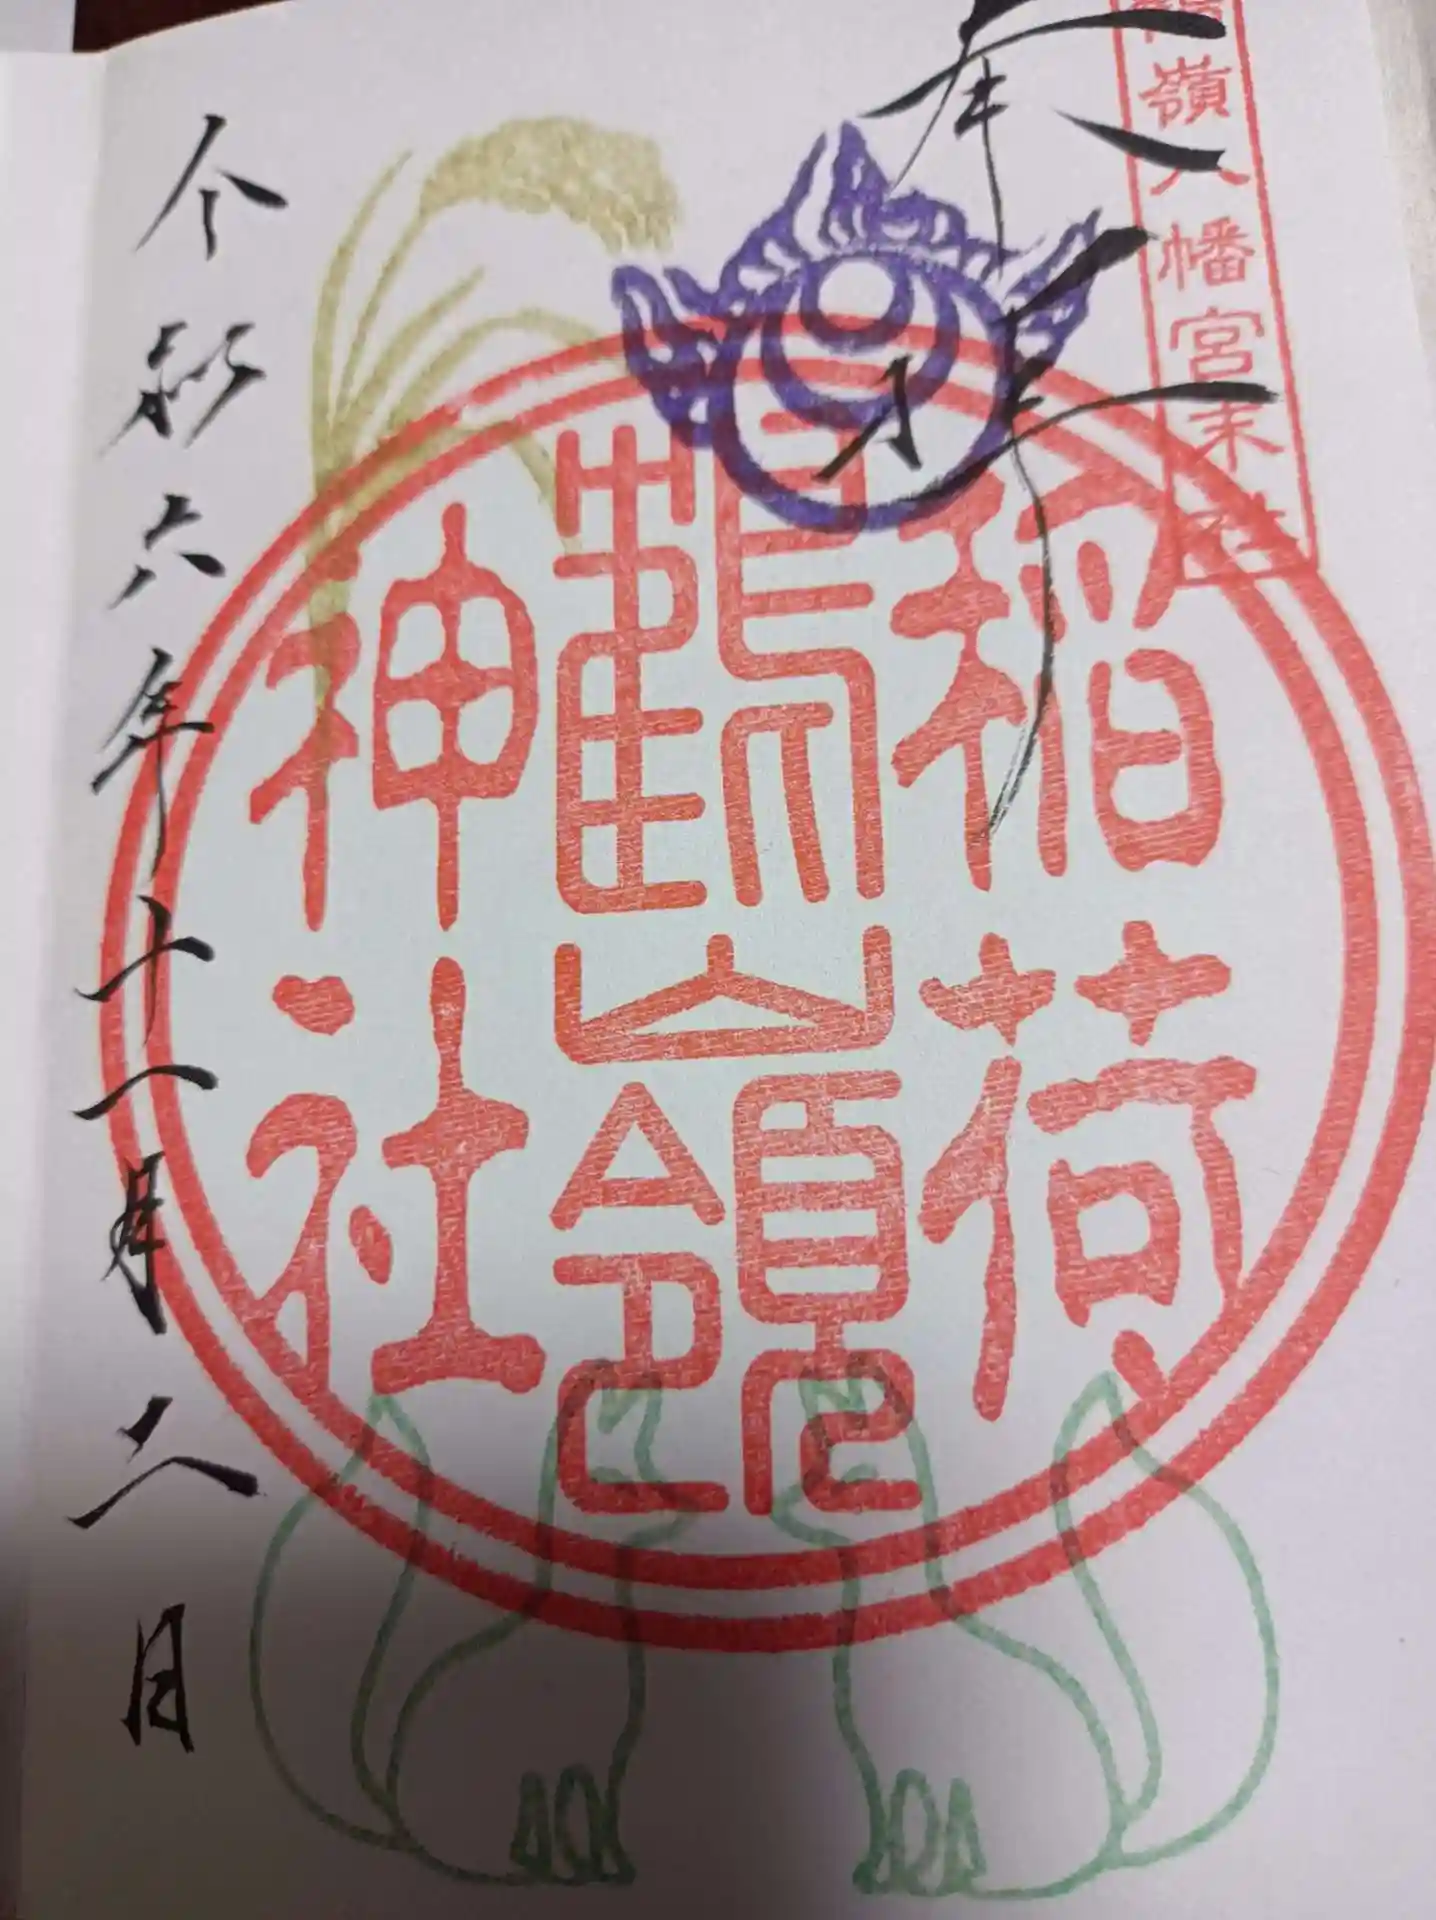 鶴嶺八幡宮末社
奉拝
稲荷
鶴嶺
神社
令和六年十一月 日